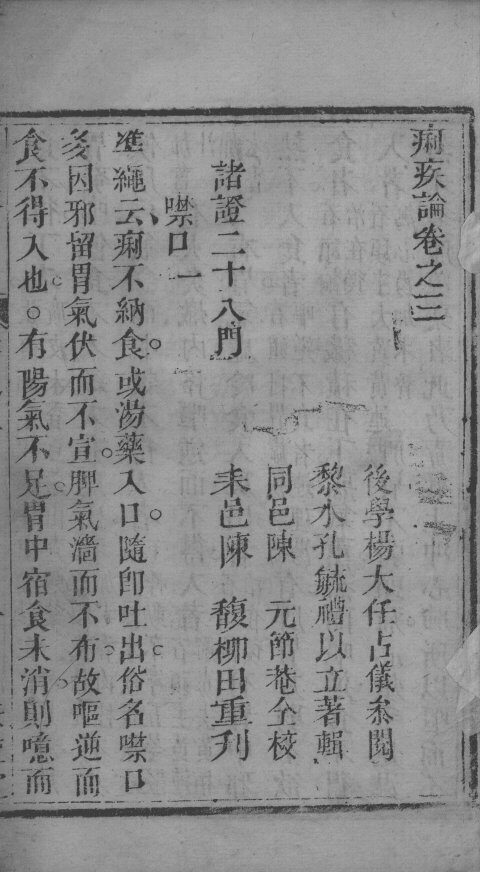 痢疾論卷之三
後學楊大任占儀叅閱
黎水孔毓禮以立著輯
同邑陳　元節菴仝校
耒邑陳　馥柳田重刋
諸證二十八門
噤口一
準繩云痢不納食或湯藥入口隨卽吐出俗名噤口
多因邪留胃氣伏而不宣脾氣濇而不布故嘔逆而
食不得入也○有陽氣不足胃中宿食未消則噫而